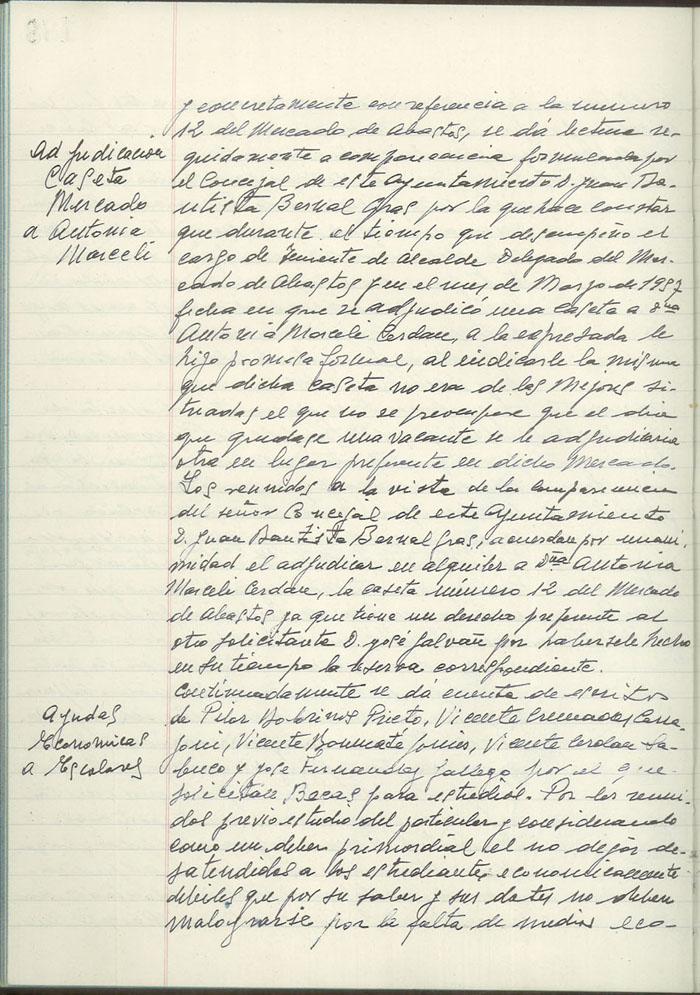 y concretamente con referencia a la número
12 del Mercado de Abastos, se dá lectura se-
guidamente a comparecencia formulada por
el Concejal de este Ayuntamiento D. Juan Ba-
utista Bernal Gras por la que hace constar
que durante el tiempo que desempeño el
cargo de Teniente de Alcalde Delegado del Mer-
cado de Abastos y en el mes de Marzo de 1957
fecha en que se adjudicó una caseta a Dña
Antonia Marceli Cerdan, a la expresada le
hizo promesa formal, al indicarle la misma
que dicha caseta no era de las mejores si-
tuadas el que no se preocupase que el dia
que quedase una vacante se le adjudicaria
otra en lugar preferente en dicho Mercado.
Los reunidos a la vista de la comparecencia
del señor Concejal de este Ayuntamiento
D. Juan Bautista Bernal Gras, acuerdan por unani-
midad el adjudicar en alquiler a Dña Antonia
Marceli Cerdan, la caseta número 12 del Mercado
de Abastos ya que tiene un derecho preferente al
otro solicitante D. José Galvañ por habersele hecho
en su tiempo la reserva correspondiente.
Continuadamente se dá cuenta de escritos
de Pilar Prieto, Vicente Cremades
Vicente Vicente Cerdan Sa-
buco y José Fernandez Gallego por el que
solicitan Becas para estudios. Por los reuni-
dos previo estudio del particular y considerando
como un deber primordial el no dejar de-
satendidos a los estudiantes economicamente
debiles que por su saber y sus dotes no deben
malograrse por la falta de medios eco-
Adjudicacion
Caseta
Mercado
a Antonia
Marceli
Ayudas
Economicas
a Escolares